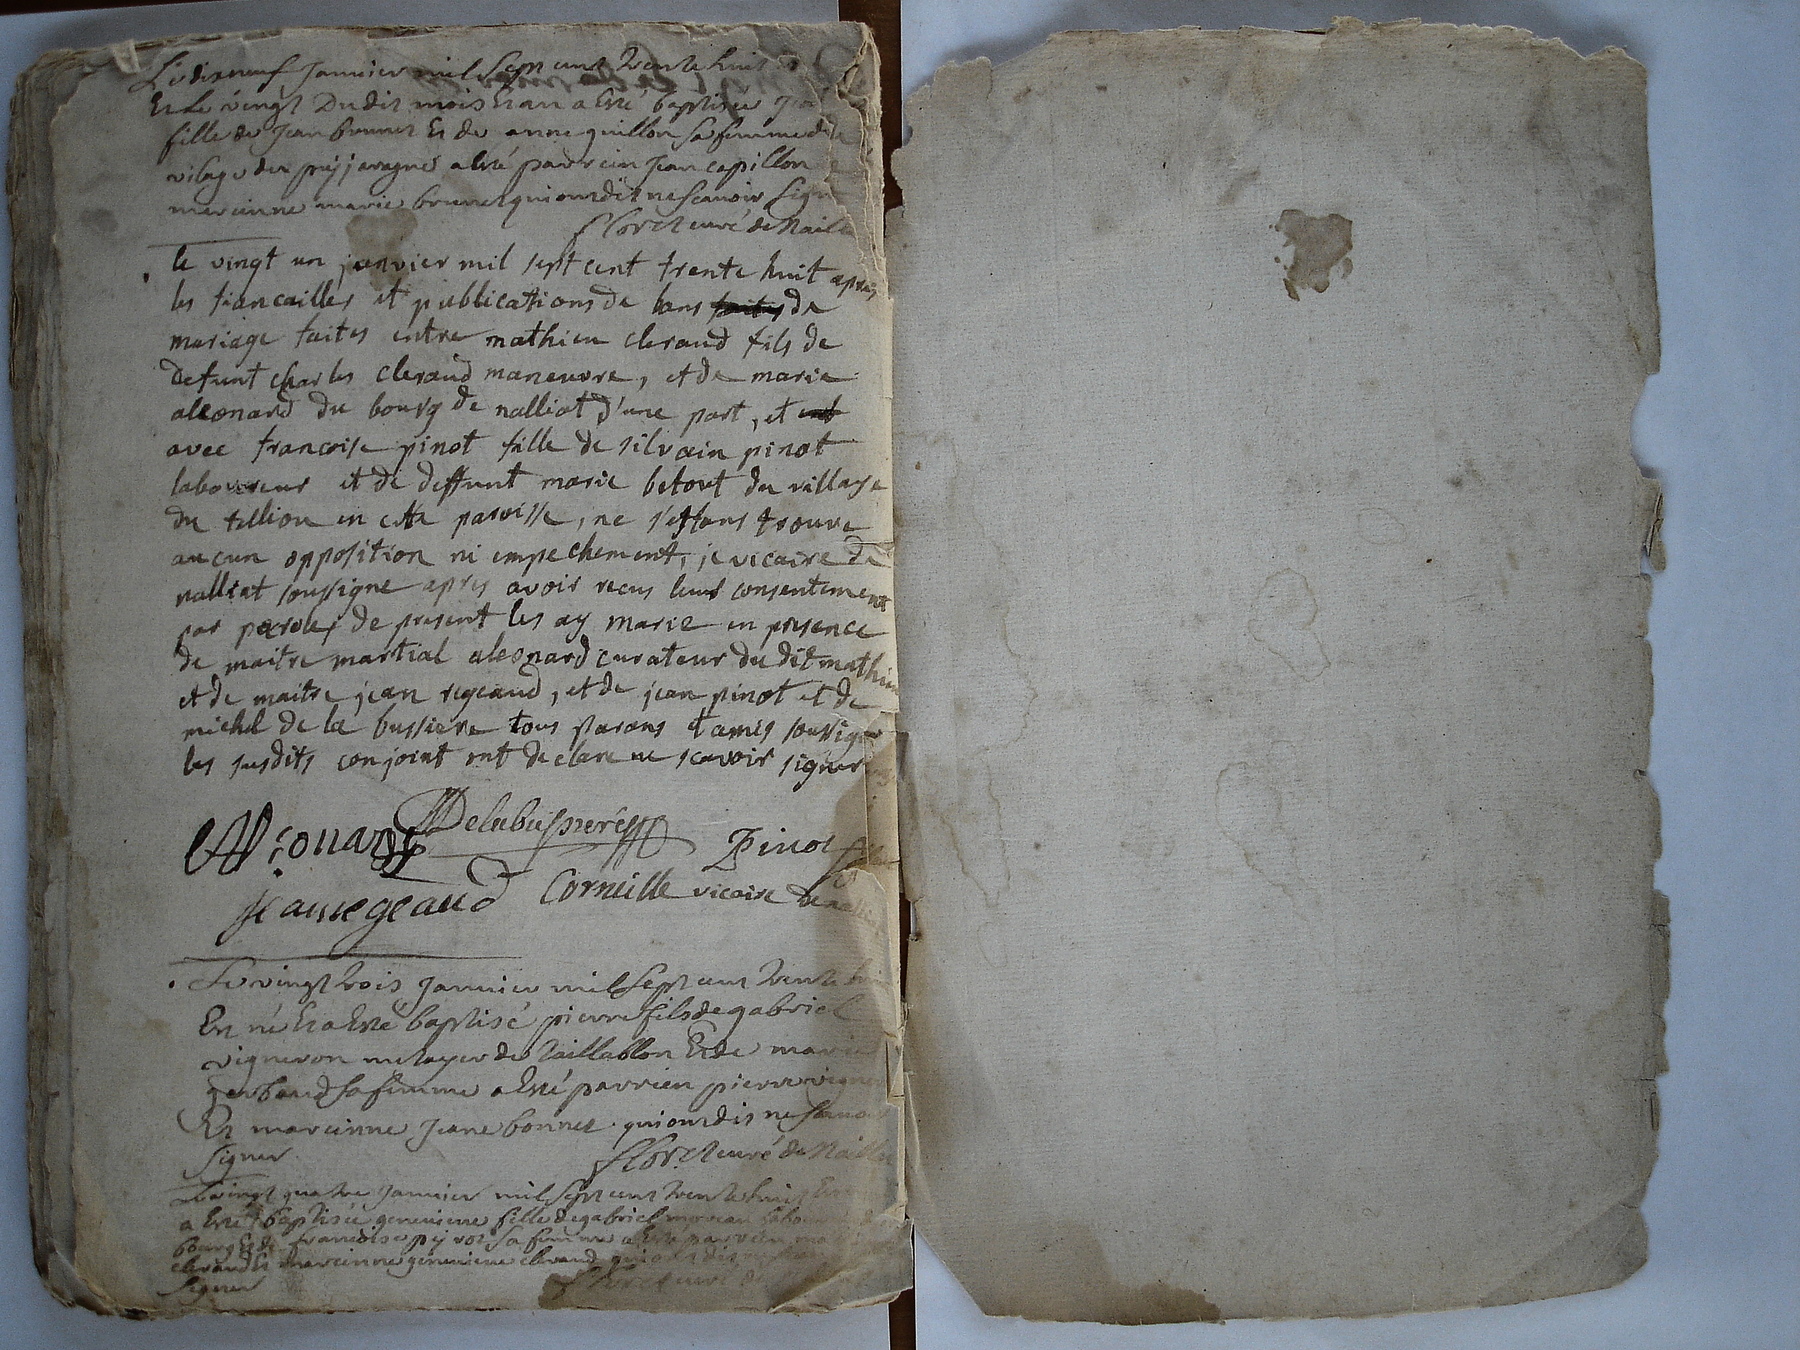 Le disneuf Janvier mil sept cent trente huit
Et Le vingt Dudit mois et an a Esté baptisée
fille de Jean brunet Et de anne guillon sa femme
vilage du a Esté parrein Jean capillon
mareinne marie brunet qui ont dit ne scavoir sign
curé de Naill
le vingt un janvier mil sept cent trente huit apres
les fiancailles et publications de bans faites de
mariage faites entre mathieu cleraud fils de
defunt charles cleraud maneuvre, et de marie
aleonard du bourg de nalliat d'une part, et
avec francoise pinot fille de silvain pinot
laboureur et de deffunt marie betout du village
du tillion en cette paroisse, ne s'estans trouve
aucun opposition ni empechement, je vicaire de
nalliat soussigne apres avoir recus leur consentement
par paroles de present les ay marie en presence
de maitre martial aleonard curateur du dit mathieu
et de maitre jean regeaud, et de jean pinot et de
michel de la bussiere tous parans et amis soussigne
les susdits conjoint ont declare ne scavoir signer
Aleonard Delabussiere Pinot
Jean regeaud Corneille vicaire de
Le vingt trois Janvier mil sept cent trente
Est né Et a Esté baptisé pierre fils de gabriel
vigneron metayer de Et de marie
gerbaud sa femme a Esté parrien pierre vigner
Et mareinne Jeane bonnet qui ont dit ne scavoir
signer
curé de Naill
Le vingt quatre Janvier mil sept cent trente huit
a Esté baptisée genevieve fille de gabriel moreau
bourg Et de francoise sa femme a Esté parrein
cleraud Et mareinne genevieve cleraud qui ont dit
signer
curé de